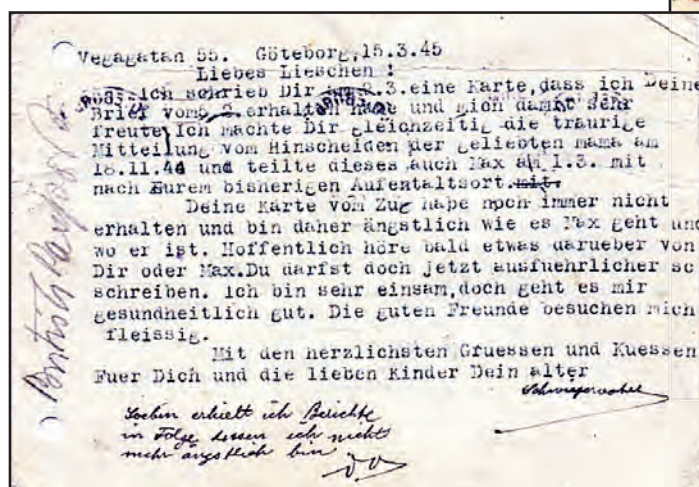 Vegagatan 55.  Göteborg,15.3.45
Liebes Lieschen :
Ich schrieb Dir am 2.3.eine Karte,dass ich Deine
Brief vom 5.2.erhalten habe und mich damit sehr
freute.Ich machte Dir gleichzeitig die traurige
Mitteilung vom Hinscheiden der geliebten mama am
18.11.44 und teilte dieses auch Max am 1.3. mit
nach Eurem bisherigen Aufentaltsort.mit.
Deine Karte vom Zug habe noch immer nicht
erhalten und bin daher ängstlich wie es Max geht und
wo er ist. Hoffentlich höre bald etwas darueber von
Dir oder Max.Du darfst doch jetzt ausfuehrlicher sc
schreiben. Ich bin sehr einsam,doch geht es mir
gesundheitlich gut. Die guten Freunde besuchen mich
fleissig.
Mit den herzlichsten Gruessen und Kuessen
Fuer Dich und die lieben Kinder Dein alter
Schwiegervater
Soeben erhielt ich Berichte
in Folge dessen ich nicht
mehr ängstlich bin
British